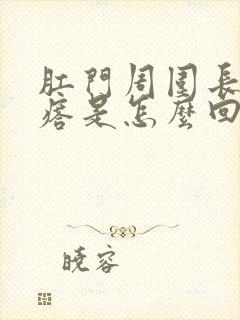 肛門周圍長
痞是怎麼回
曉容